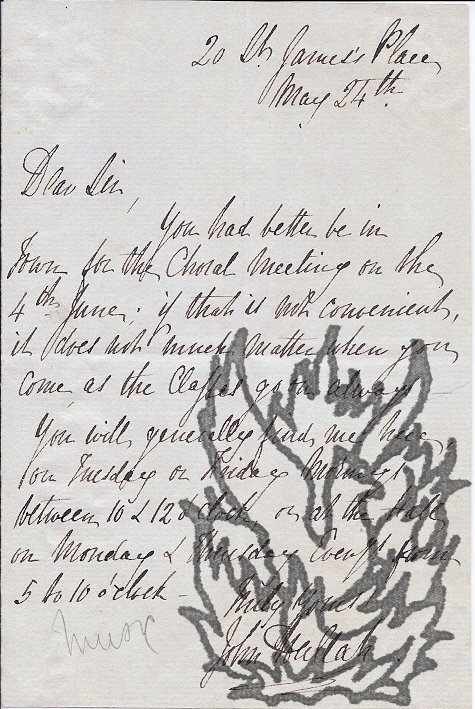 20 St. James's Place
May 24th.
Dear Sir,
You had better be in
Town for the Choral Meeting on the
4th June; if that is not convenient,
it does not much matter when you
come, as the Classes go on always
You will generally find me here,
on Tuesday or Friday Mornings
between 10 & 12 o'clock, or at the Hall
on Monday & Thursday Even'gs from
5 to 10 o'clock -
Truly yours
John Hullah